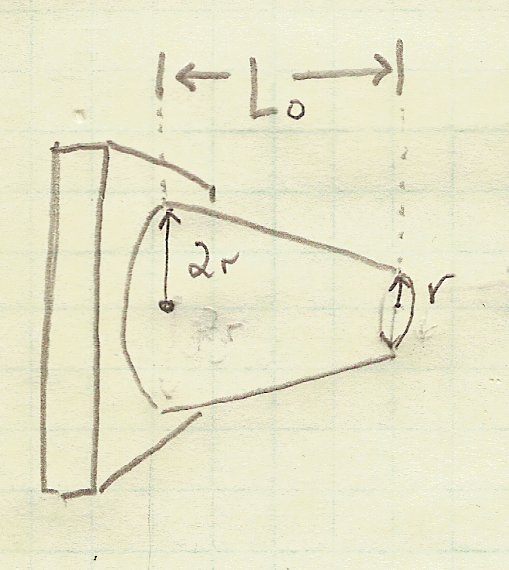 L₀
2r
r